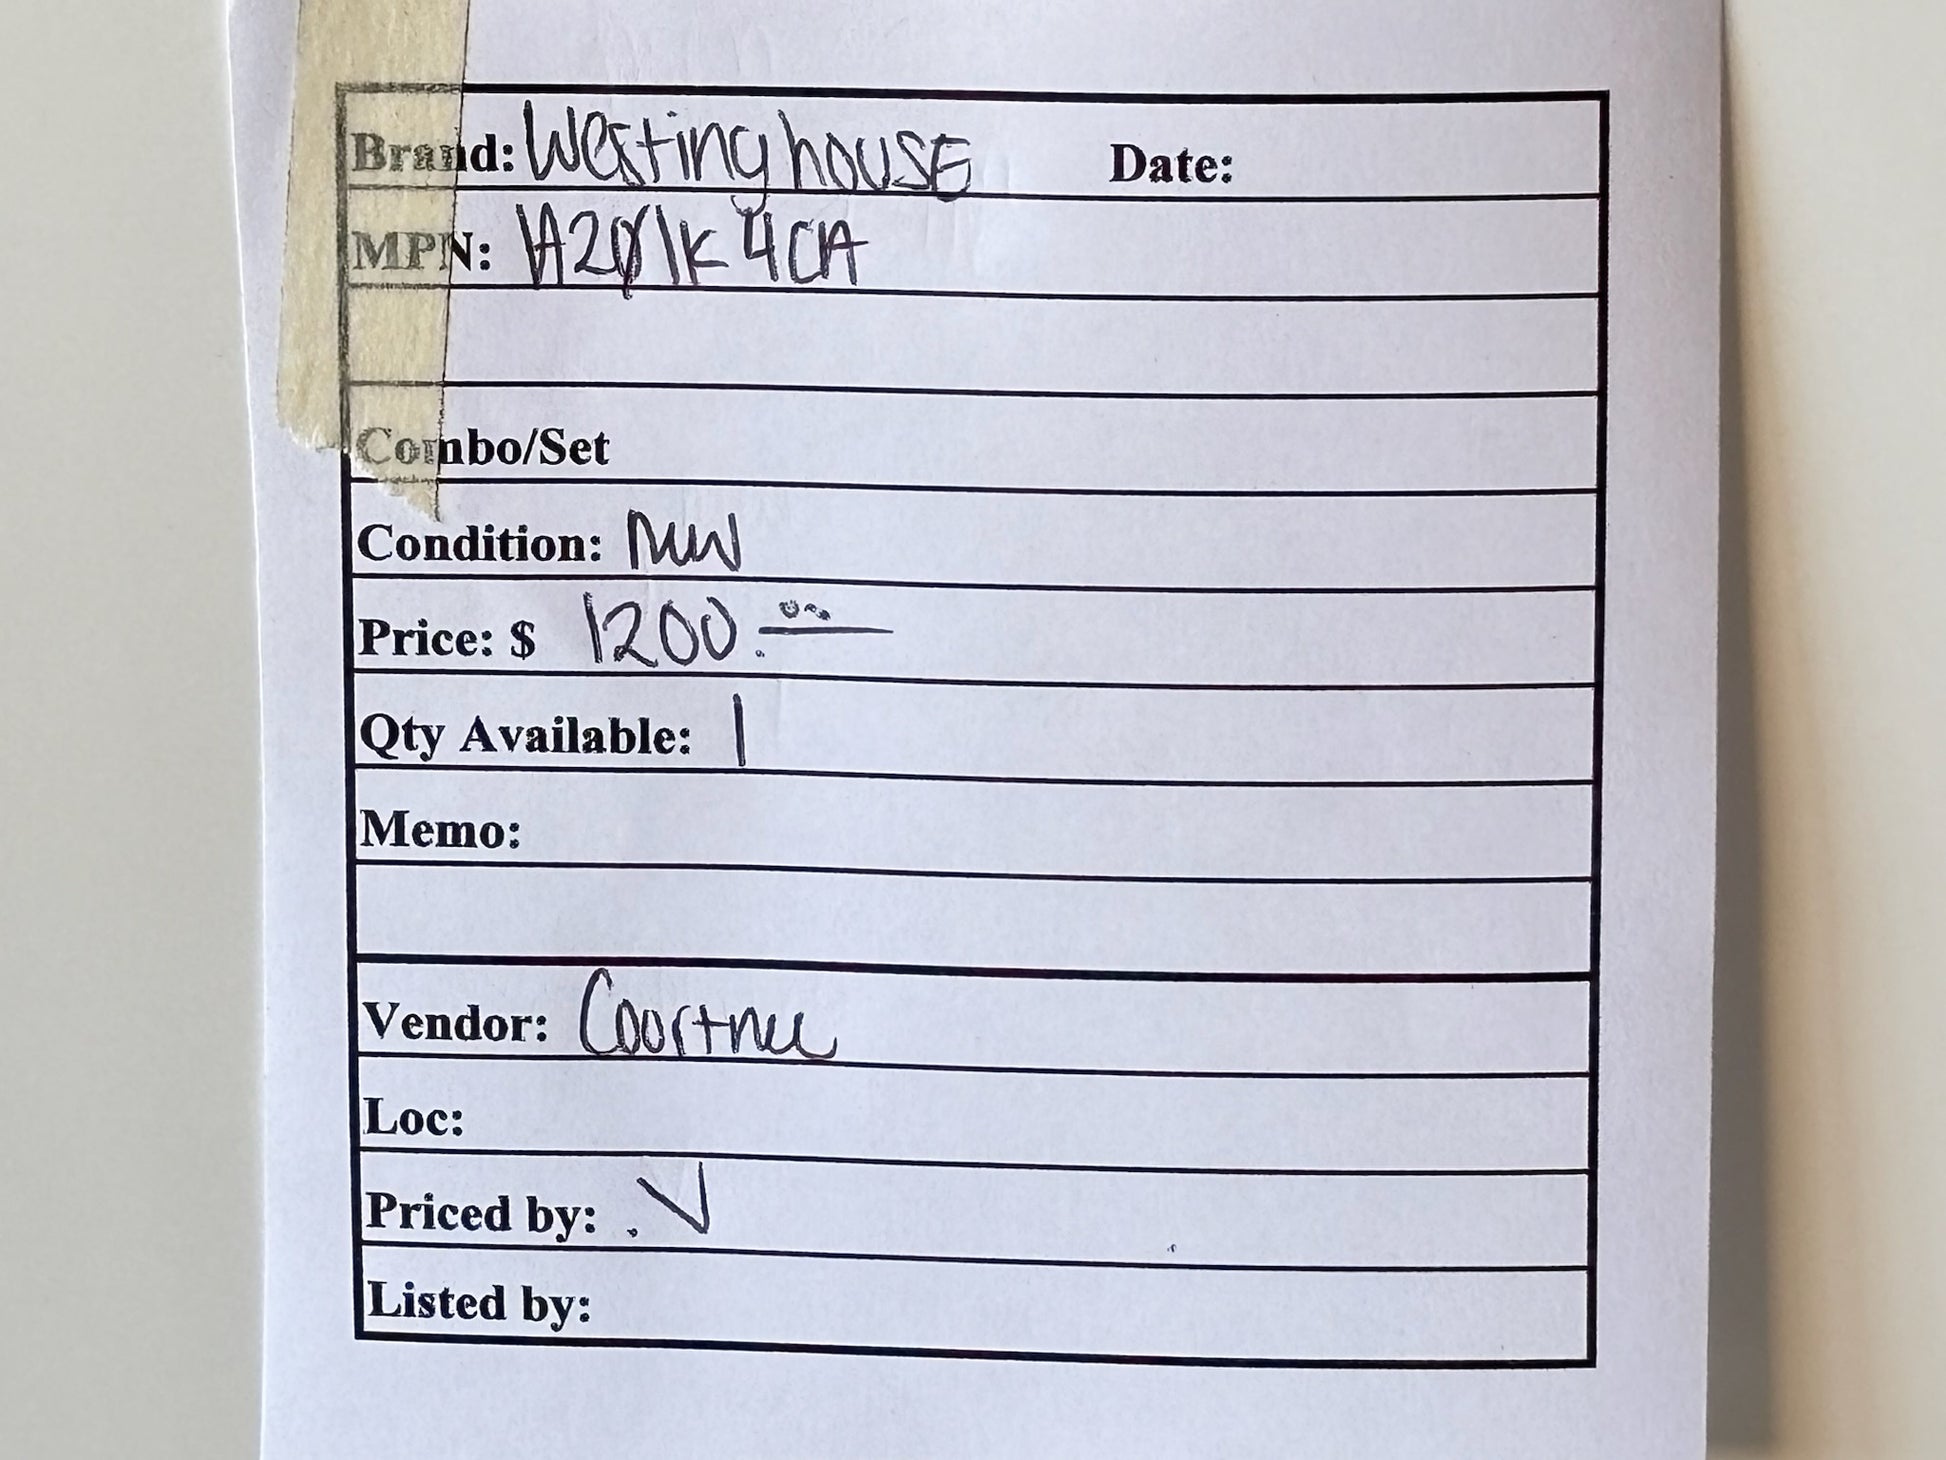 Brand: Westinghouse Date:
MPN: A201K4CA
Combo/Set
Condition: New
Price: $ 1200.00
Qty Available: 1
Memo:
Vendor:
Loc:
Priced by: V
Listed by: